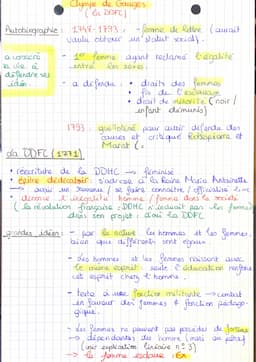 Olympe de Gouges
(la DDFC)
Autobiographie : 1748-1793 : - femme de lettre (aurait
voulu obtenir un statut social).
- 1ère femme ayant réclamé l'égalité
entre les sexes.
a consacré
sa vie à
défendre ses
idées.
- a défendu : • droits des femmes
• fin de l'esclavage
• droit de minorité (noir /
enfant démunis)
1793 : guillotiné pour avoir défendu des
causes et critiqué Robespierre et
Marat (.
La DDFC (1771)
• réécriture de la DDHC → féminisé
• épître dédicatoire : s'adresse à la Reine Marie Antoinette
→ avoir un / se faire connaître / officialise
• dénonce l'inégalité homme / femme dans la société
(la révolution française, DDHC n'incluait pas les femmes
dans son projet : d'où la DDFC
grandes idées : - par la nature les hommes et les femmes
bien que différents sont égaux
- Les hommes et les femmes naissent avec
le même esprit seule l'éducation renforce
cet esprit chez l'homme.
- texte à une fonction militante → combat
en faveur des femmes + fonction pédago-
gique.
- les femmes ne peuvent pas posséder de
→ dépendantes des hommes (mari ou père)
(voir explication linéaire n°3)
→ la femme esclave : Ex